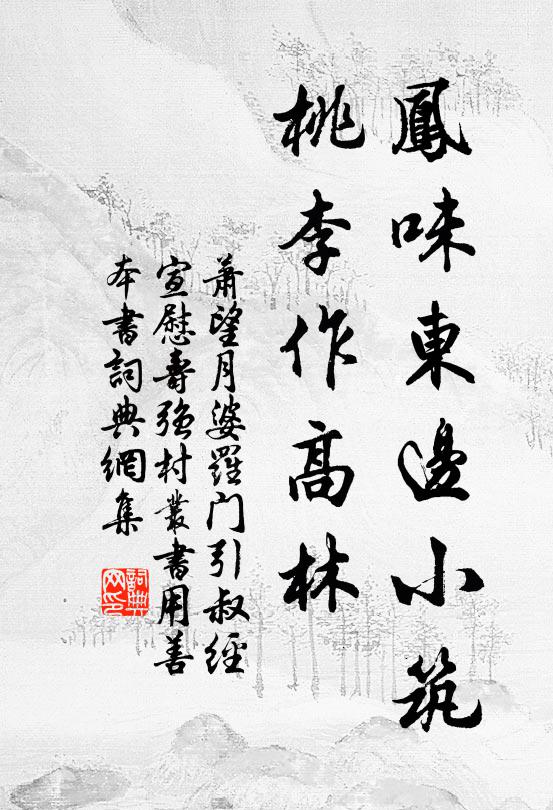 鳳味東邊小筑
桃李作高林
蕭望月婆羅门引叔經
宣慰壽強村叢書用善
本書詞典網集
詞典网印